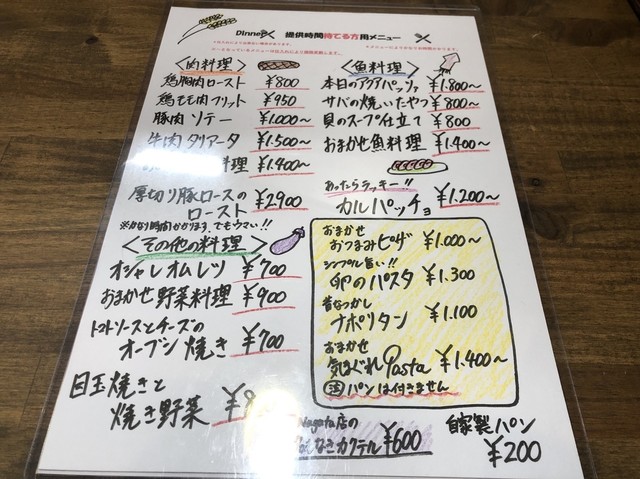 Dinner 提供時間待てる方用メニュー
〈肉料理〉
鶏胸肉ロースト ¥800
鶏もも肉フリット ¥950
豚肉ソテー ¥1.000〜
牛肉タリアータ ¥1.500〜
料理 ¥1.400〜
厚切り豚ロースの
ロースト ¥2900
※かなり時間かかります、でもウマい!!
〈その他の料理〉
オシャレオムレツ ¥700
おまかせ野菜料理 ¥900
トマトソースとチーズの
オーブン焼き ¥700
目玉焼きと
焼き野菜
〈魚料理〉
本日のアクアパッツァ ¥1.800〜
サバの焼いたやつ ¥800〜
貝のスープ仕立て ¥800
おまかせ魚料理 ¥1.400〜
あったらラッキー!!
カルパッチョ ¥1.200〜
おまかせ
おつまみピザ ¥1.000〜
シンプル旨い!!
卵のパスタ ¥1.300
昔なつかし
ナポリタン ¥1.100
おまかせ
気まぐれPasta ¥1.400〜
注 パンは付きません
Nagata店の
カクテル ¥600
自家製パン
¥200